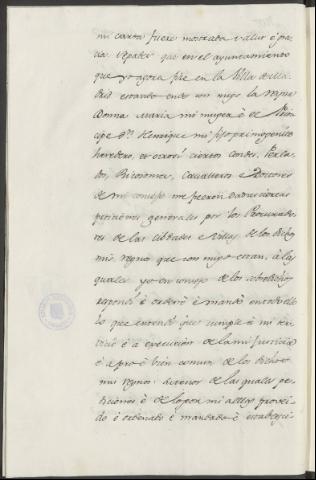 mi carta fuere mostrada salud é gra
cia. Sepades que en el ayuntamiento
que yo agora fise en la Villa de Ma
drid estando ende con migo la Reyna
Donna Maria mi muger é el Prin
cipe Dn. Henrique mi fijo primogenito
heredero, é ciertos Condes, Perla
dos, Ricosomes, Cavalleros é Doctores
de mi consejo me fueron dadas ciertas
peticiones generales por los Procurado
res de las cibdades é Villas de los dichos
mis regnos que con migo estan, á las
quales yo con consejo de los sobredichos
respondí é ordené é mandé en todo ello
lo que entendí que cumple á mi ser
vicio é á execucion de la mi justicia
é á pro é bien comun de los dichos
mis regnos: el tenor de las quales pe
ticiones é de lo por mi á ellas provei
do é ordenado é mandado é establesci